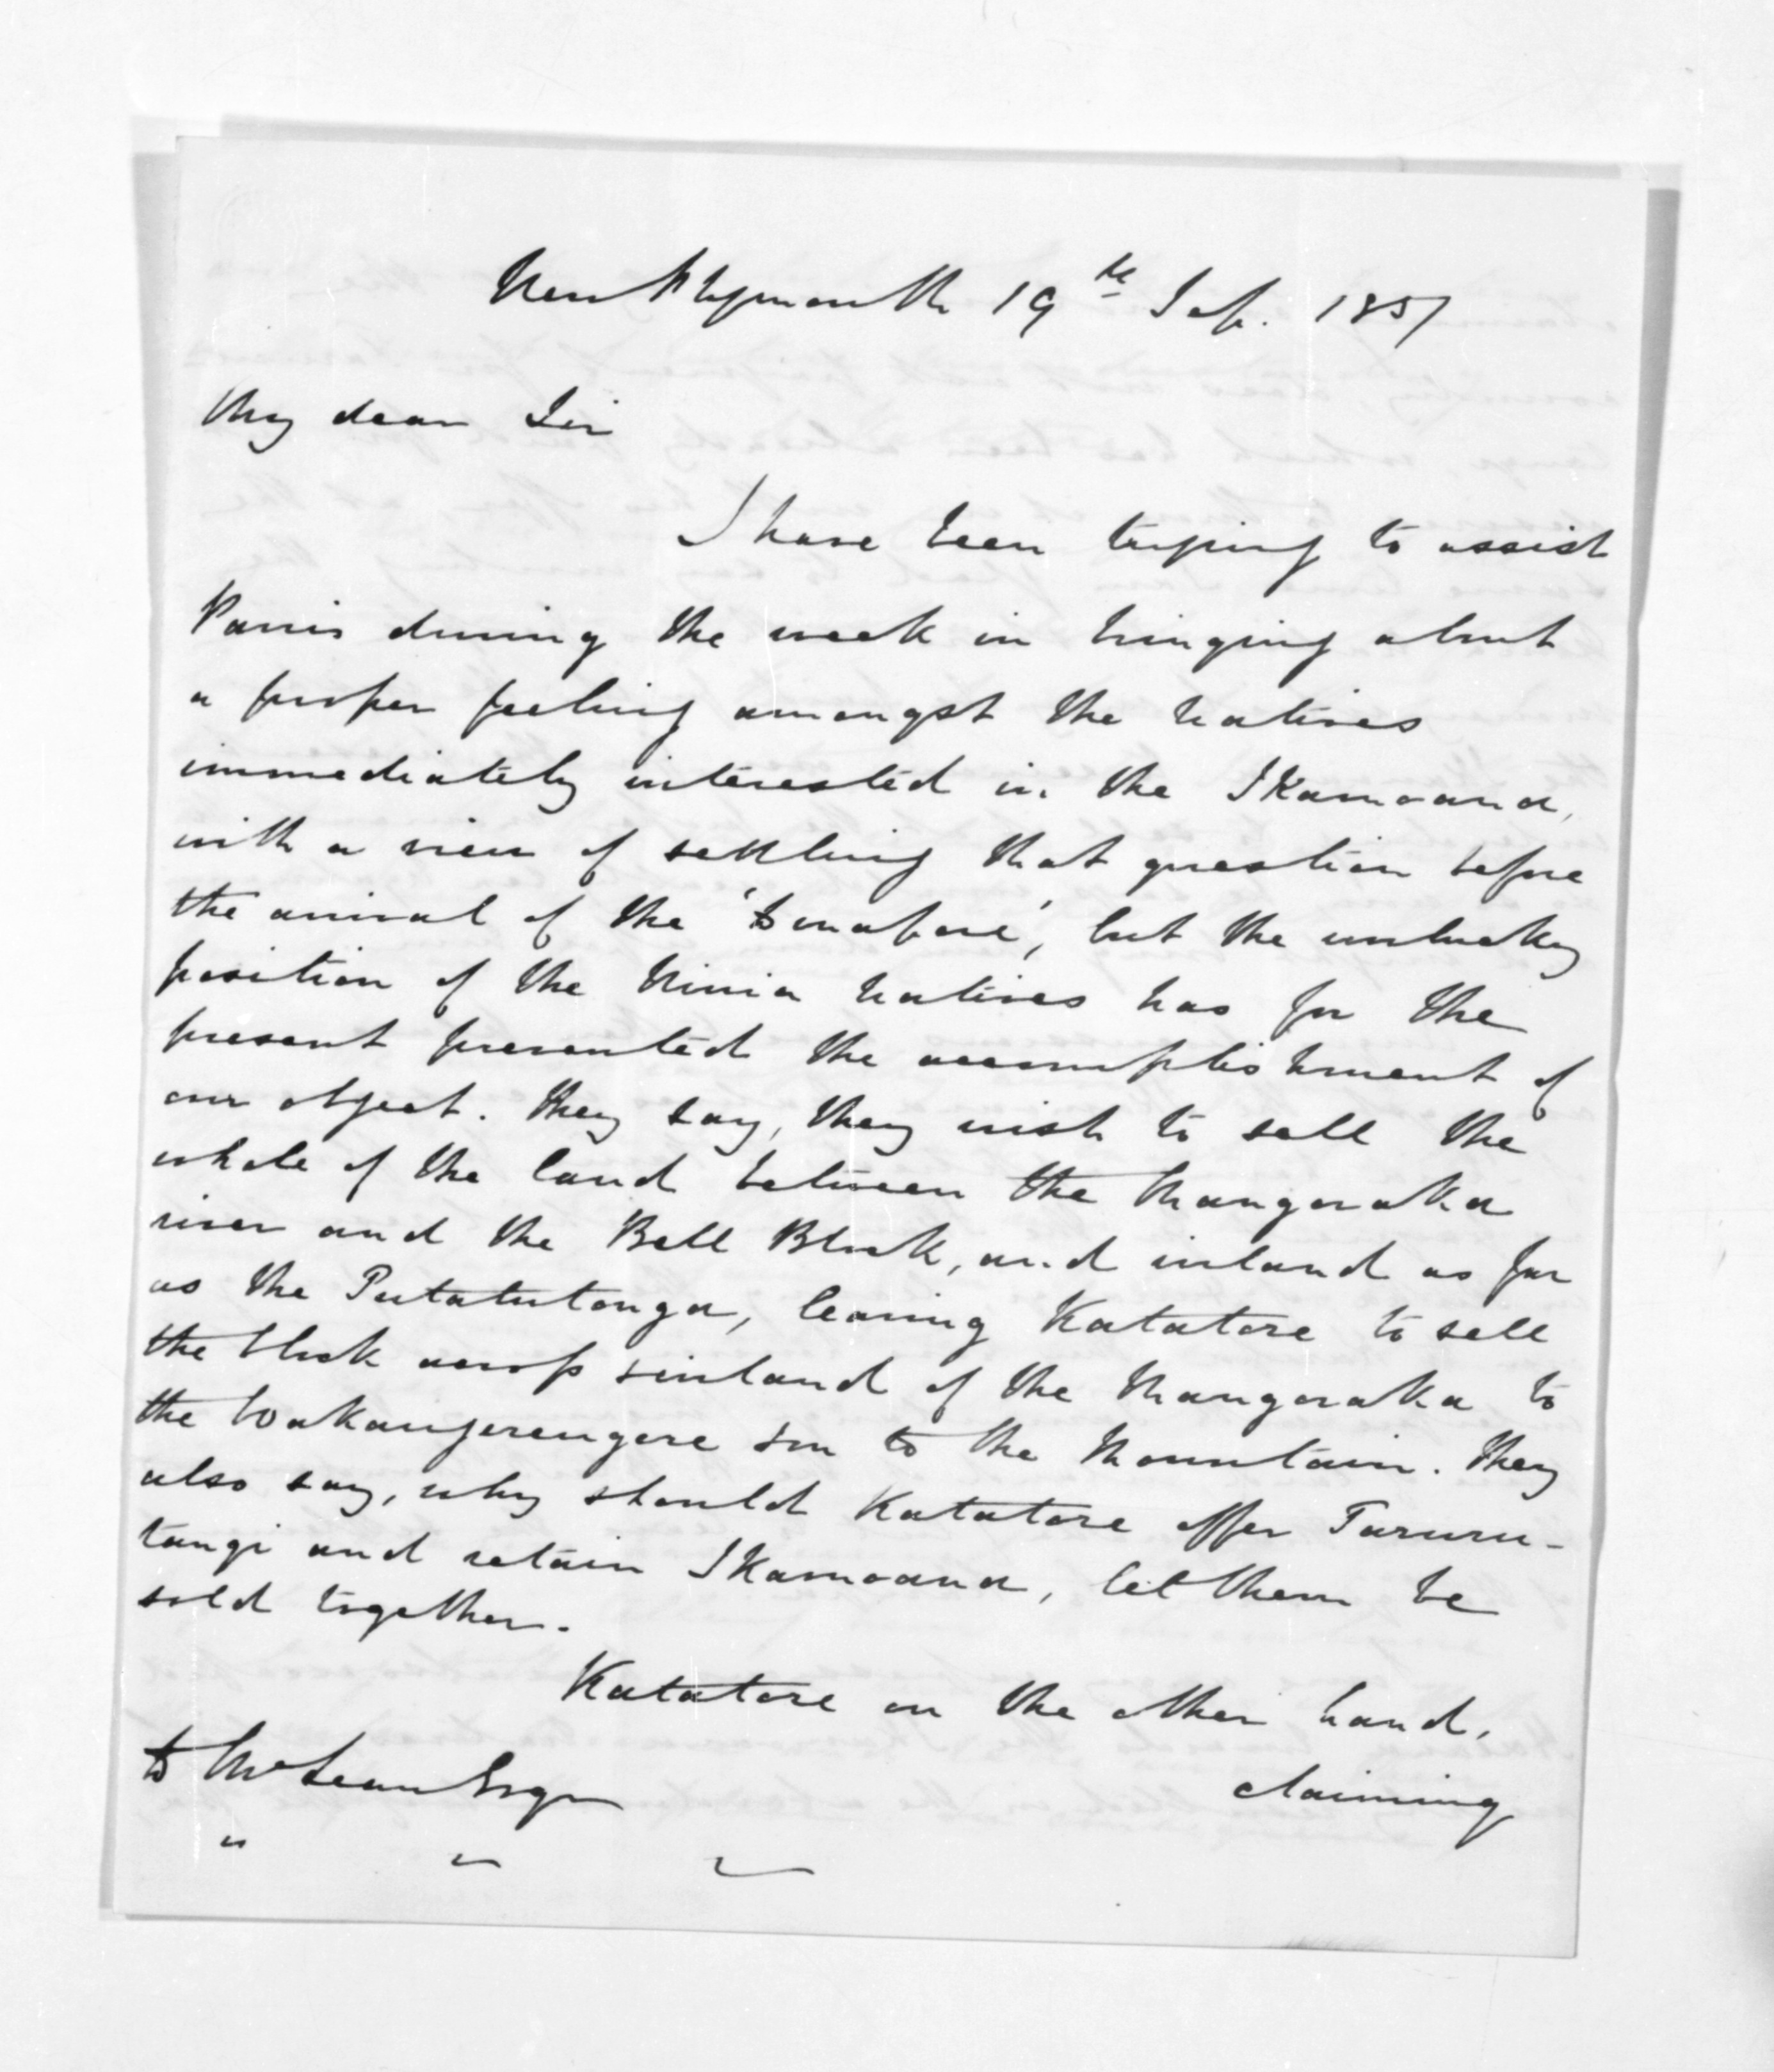 New Plymouth 19th Sep. 1857
My dear Sir
I have been trying to assist
Parris during the week in bringing about
a proper feeling amongst the Natives
immediately interested in the Ikamoana,
with a view of settling that question before
the arrival of the '                ', but the unlucky
position of the Ninia Natives has for the
present prevented the accomplishment of
our object. They say, they wish to sell the
whole of the land between the Mangoraka
river and the Bell Block, and inland as far
as the Putatutonga, leaving Katatore to sell
the block across inland of the Mangoraka to
the                on to the Mountain. They
also say, why should Katatore offer Taruru-
tangi and retain Ikamoana, let them be
sold together.
Katatore on the other hand,
claiming
D McLean Esqr
" " "